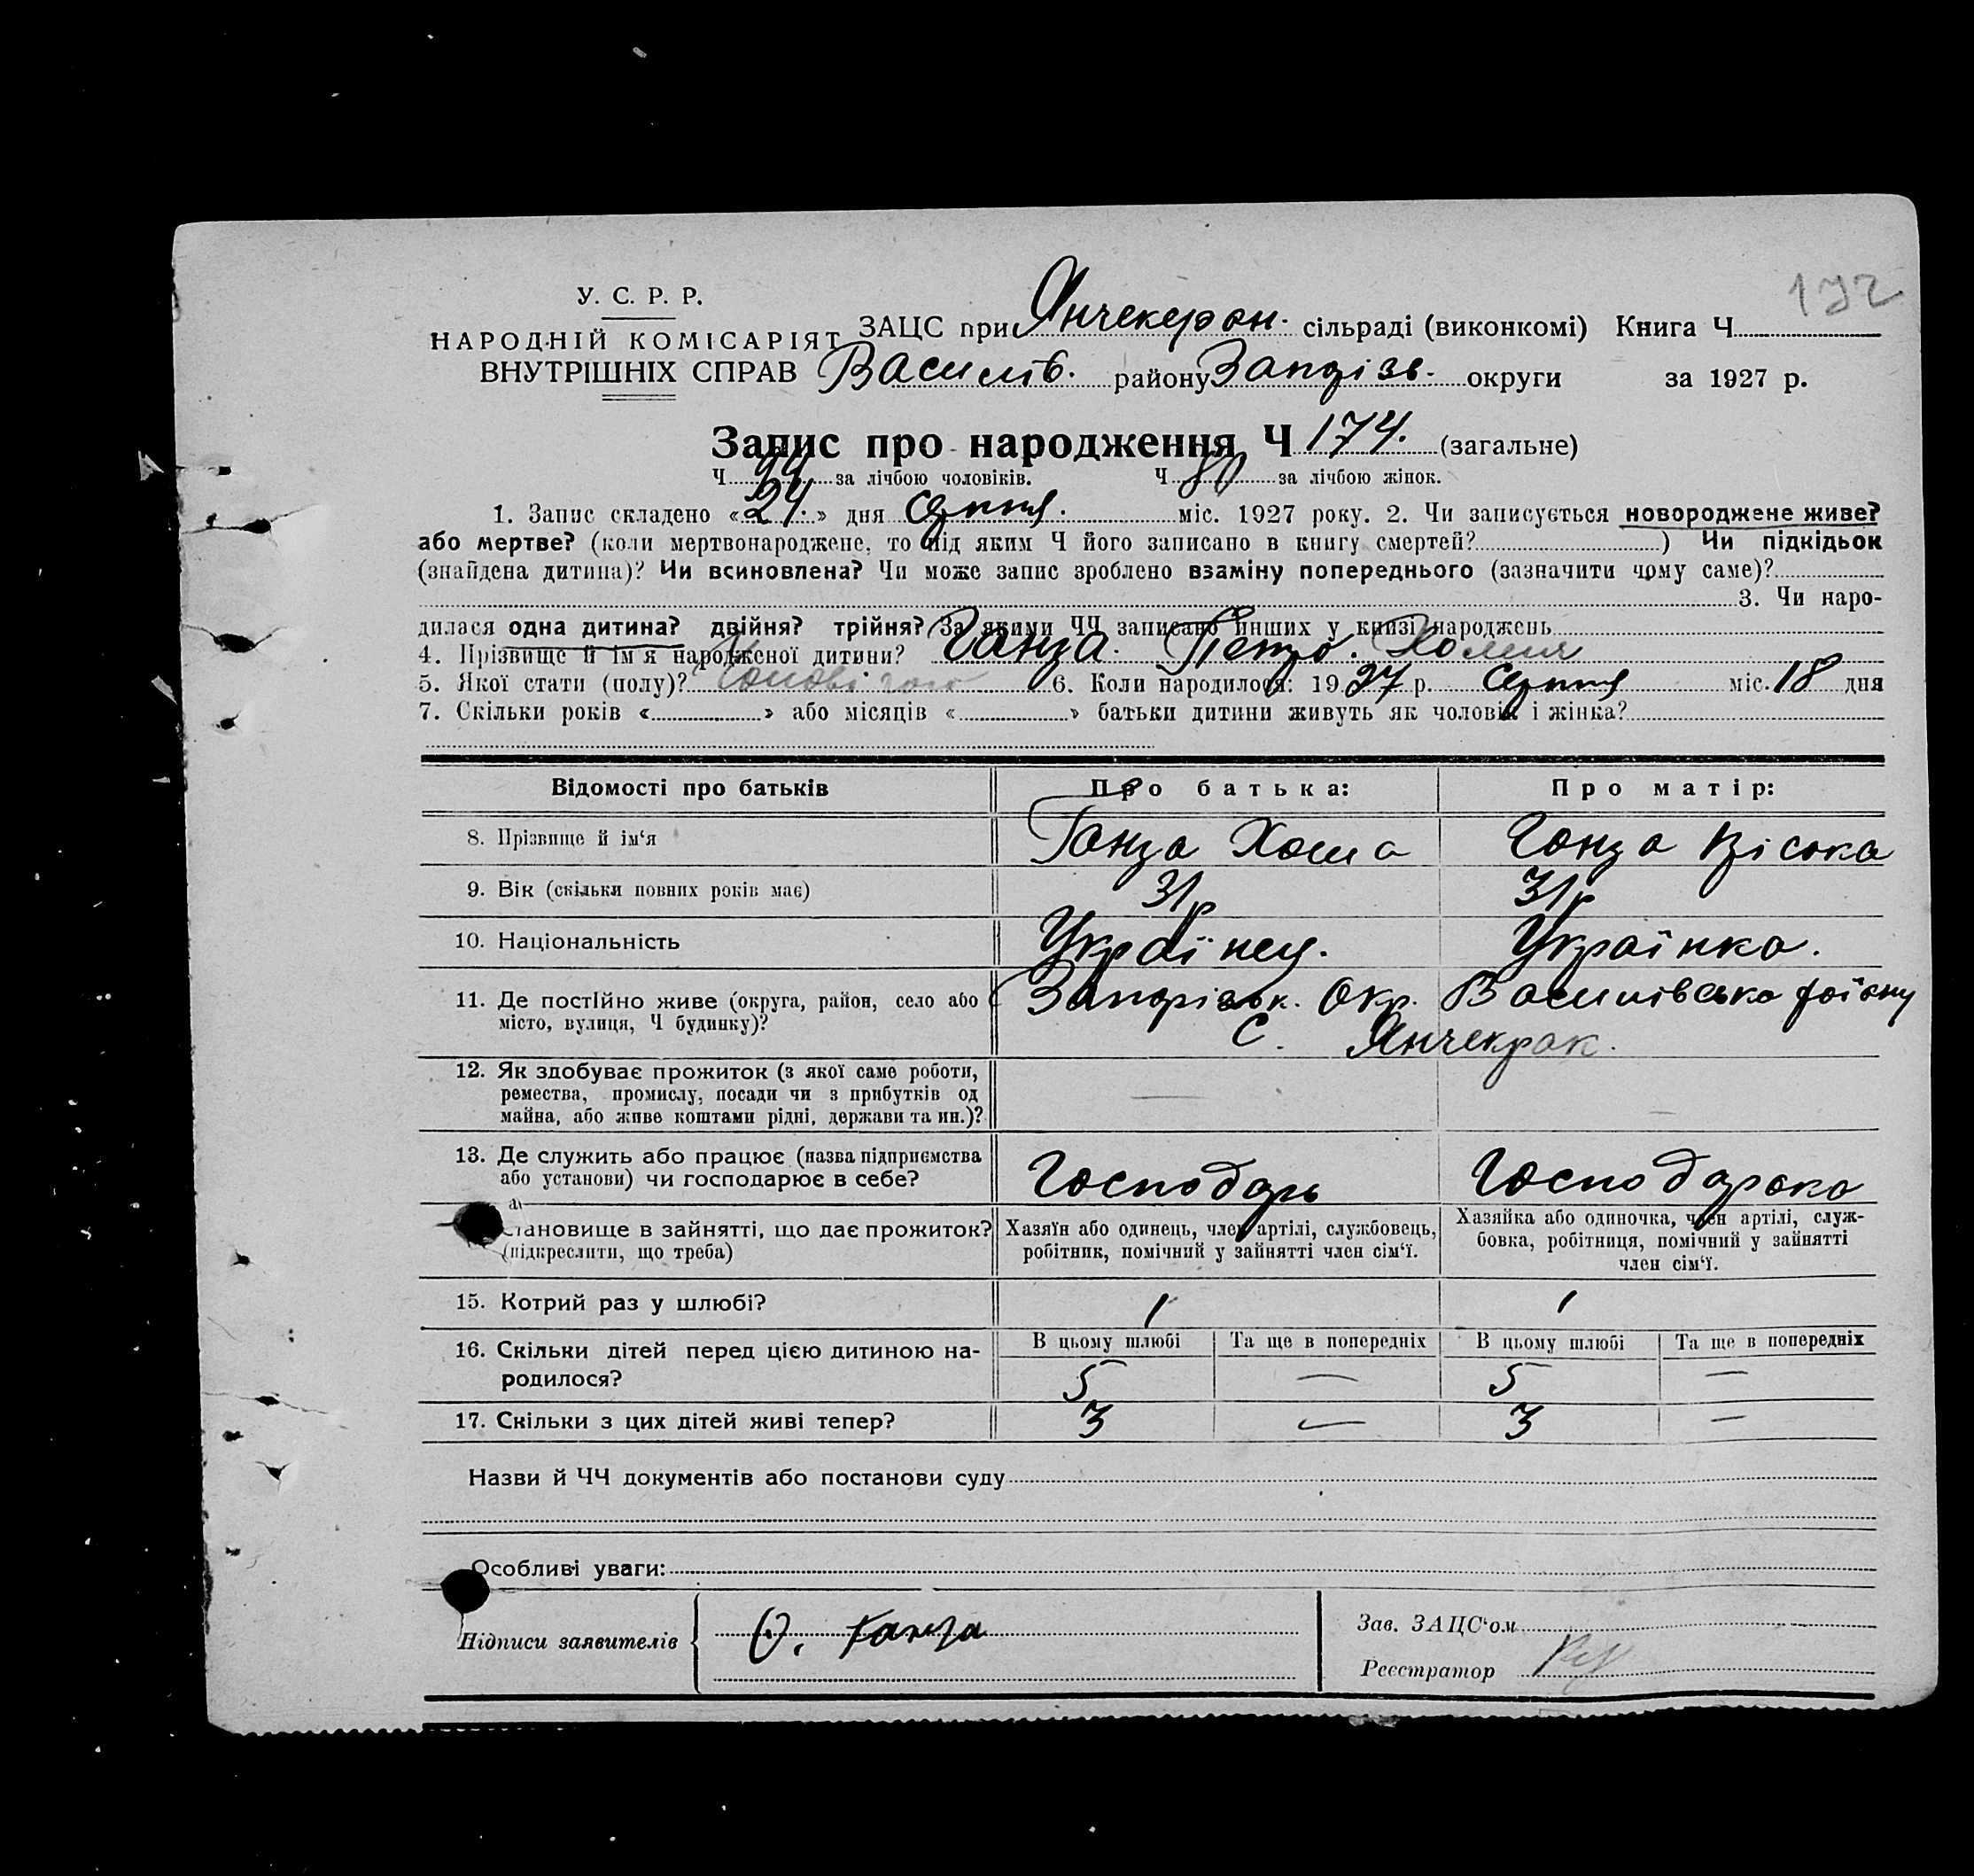 172
У. С. Р. Р.
НАРОДНІЙ КОМІСАРІЯТ
ВНУТРІШНІХ СПРАВ
ЗАЦС при Янчекерон. сільраді (виконкомі) Книга Ч
Василів. району Запоріз. округи за 1927 р.
Запис про народження Ч 174. (загальне)
Ч 94 за лічбою чоловіків. Ч 80 за лічбою жінок.
1. Запис складено «24.» дня серпня. міс. 1927 року. 2. Чи записується новороджене живе?
або мертве? (коли мертвонароджене, то під яким Ч його записано в книгу смертей?) Чи підкідьок
(знайдена дитина)? Чи всиновлена? Чи може запис зроблено взаміну попереднього (зазначити чому саме)?
3. Чи наро-
дилася одна дитина? двійня? трійня? За якими ЧЧ записано инших у книзі народжень
4. Прізвище й ім'я народженої дитини? Ганза. Петро. Хомич
5. Якої стати (полу)? 6. Коли народилося: 1927 р. серпня міс. 18 дня
7. Скільки років «» або місяців «» батьки дитини живуть як чоловік і жінка?
Відомості про батьків Про батька: Про матір:
8. Прізвище й ім'я Ганза Хома Ганза
9. Вік (скільки повних років має) 31р 31р
10. Національність Українец. Українка.
11. Де постійно живе (округа, район, село або Запорізьк. Окр. Василівська
місто, вулиця, Ч будинку)? С. Янчекрак.
12. Як здобуває прожиток (з якої саме роботи,
ремества, промислу, посади чи з прибутків од
майна, або живе коштами рідні, держави та ин.)? — —
13. Де служить або працює (назва підприємства
або установи) чи господарює в себе? Господарь Господарка
становище в зайнятті, що дає прожиток? Хазяїн або одинець, член артілі, службовець, Хазяйка або одиночка, член артілі, служ-
(підкреслити, що треба) робітник, помічний у зайнятті член сім'ї. бовка, робітниця, помічний у зайнятті
член сім'ї.
15. Котрий раз у шлюбі? 1 1
16. Скільки дітей перед цією дитиною на- В цьому шлюбі Та ще в попередніх В цьому шлюбі Та ще в попередніх
родилося? 5 — 5 —
17. Скільки з цих дітей живі тепер? 3 — 3 —
Назви й ЧЧ документів або постанови суду
Особливі уваги:
Підписи заявителів О. Ганза
Зав. ЗАЦС'ом
Реєстратор